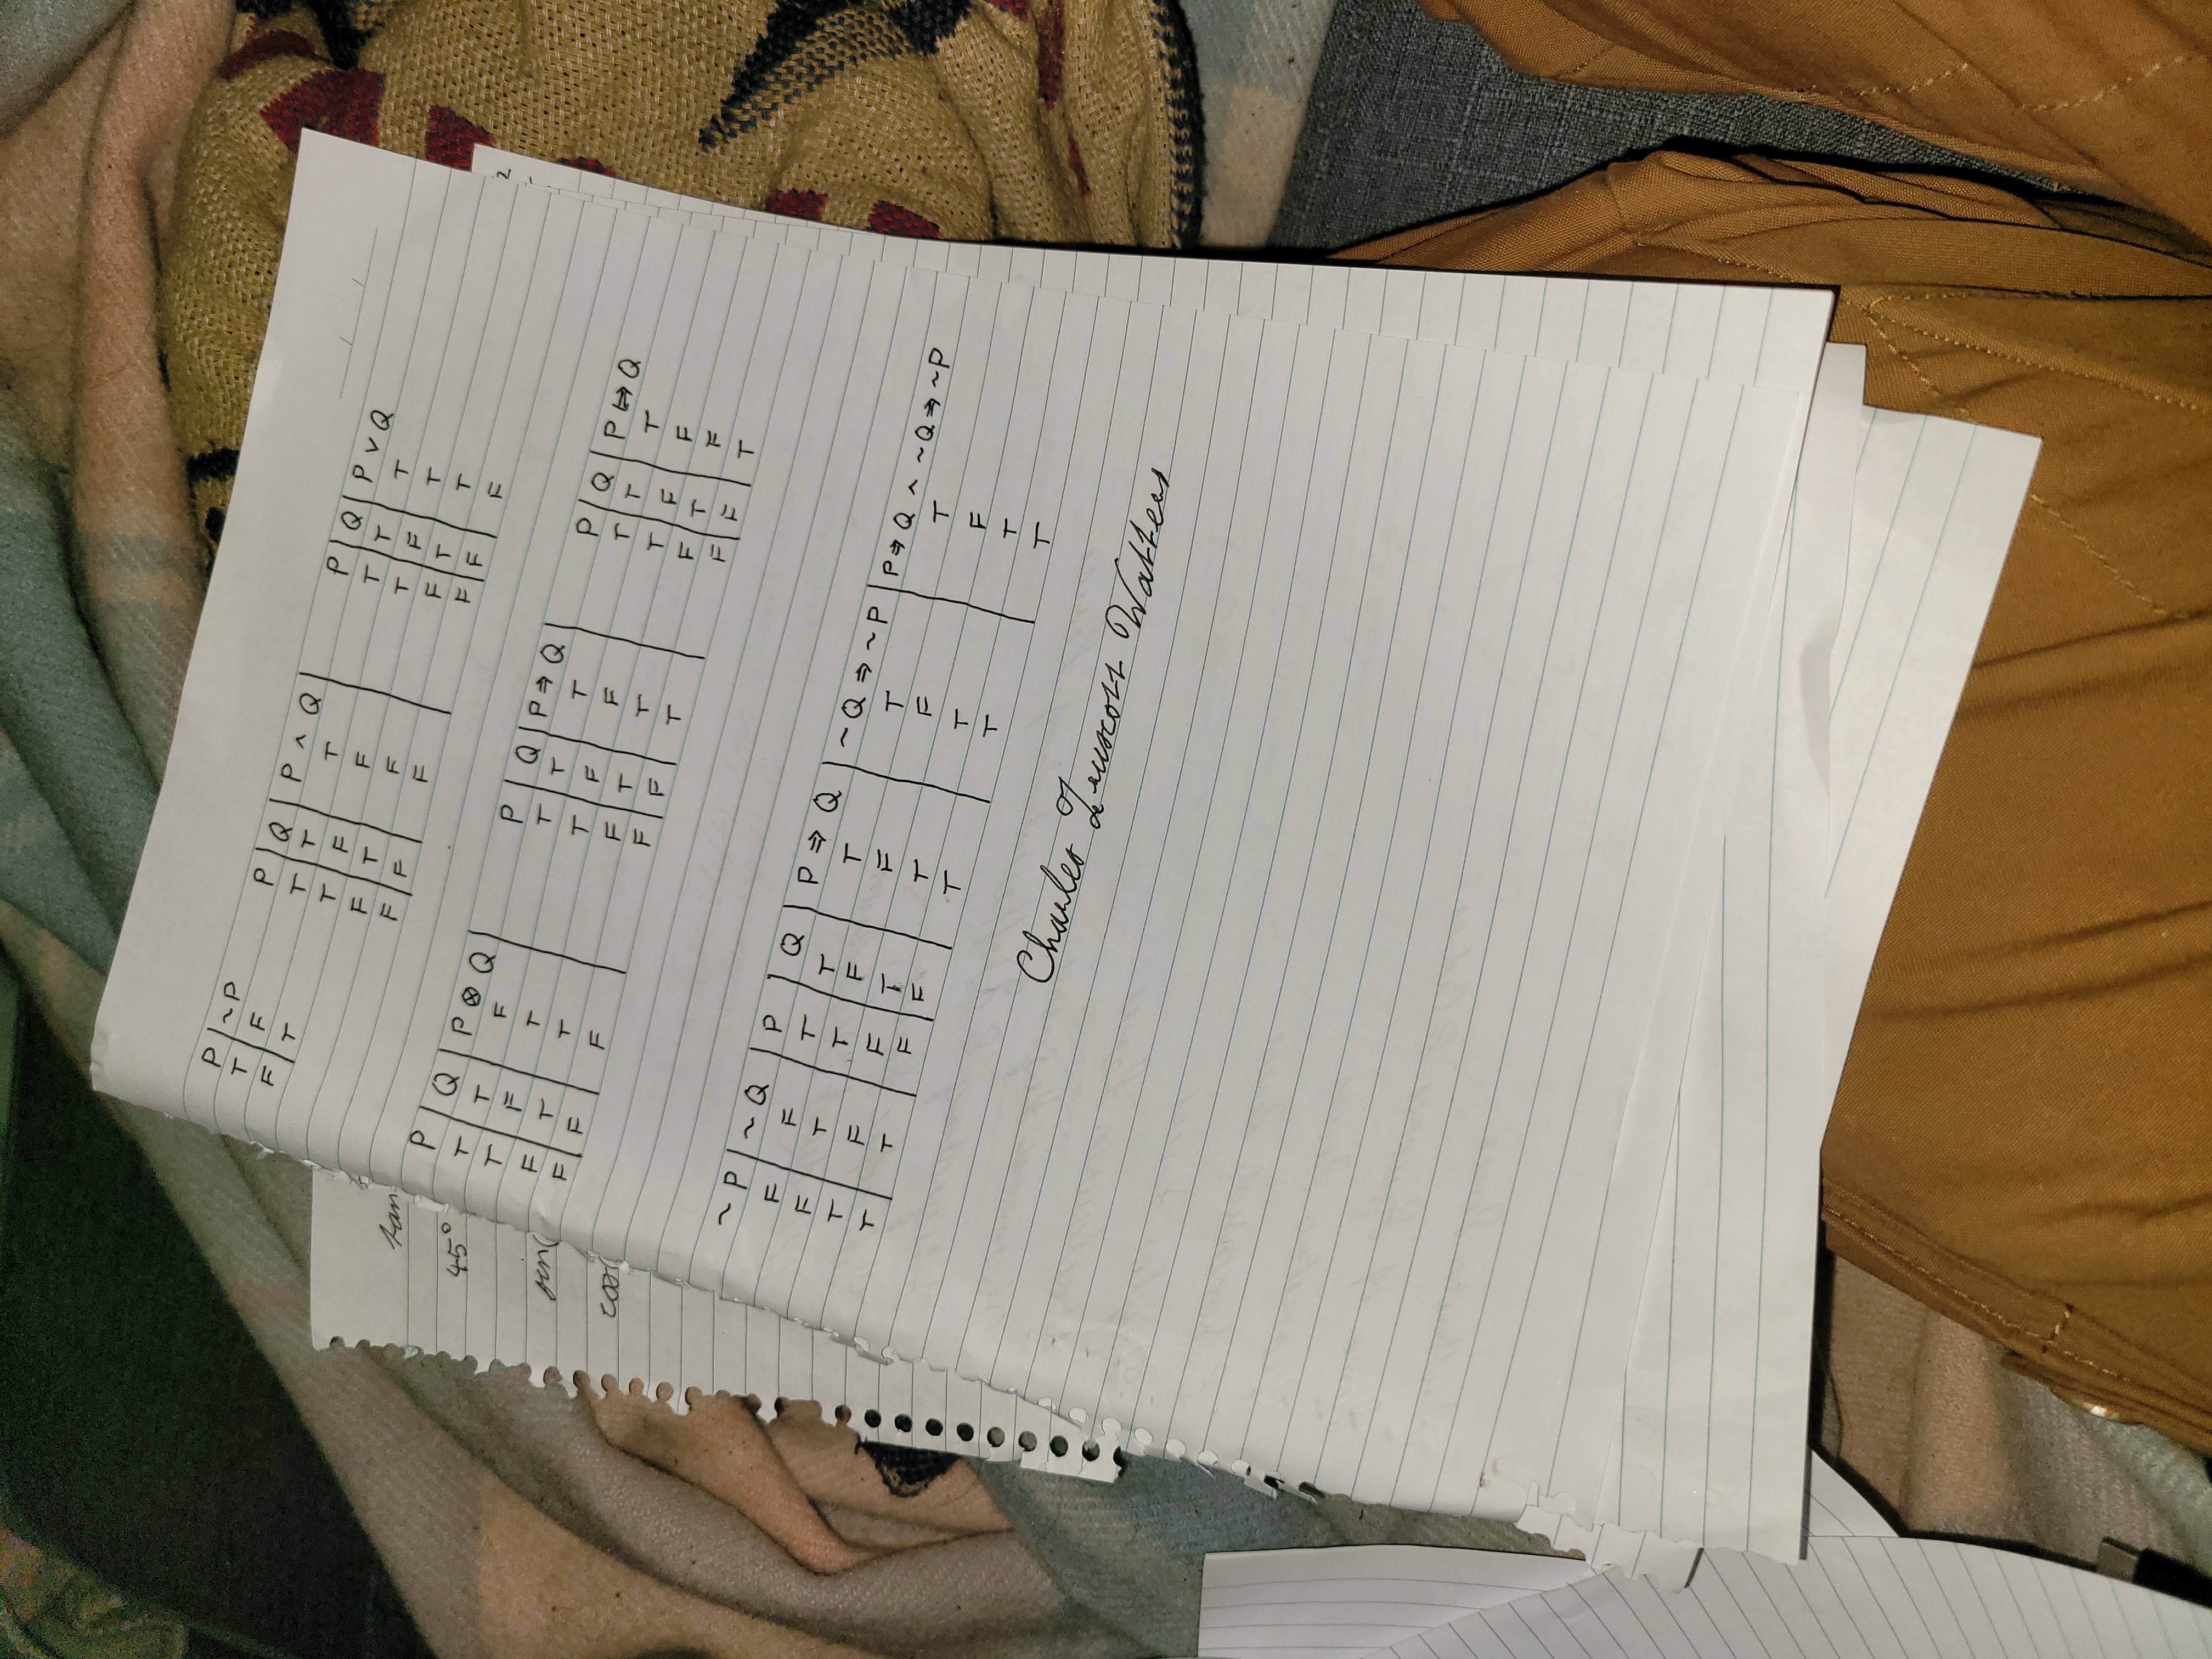 P | ~P
T | F
F | T
P | Q | P ∧ Q |
T | T | T
T | F | F
F | T | F
F | F | F
P | Q | P ∨ Q
T | T | T
T | F | T
F | T | T
F | F | F
P | Q | P ⊗ Q |
T | T | F
T | F | T
F | T | T
F | F | F
P | Q | P ⇒ Q |
T | T | T
T | F | F
F | T | T
F | F | T
P | Q | P ⇔ Q
T | T | T
T | F | F
F | T | F
F | F | T
~P | ~Q | P | Q | P ⇒ Q | ~Q ⇒ ~P | P ⇒ Q ∧ ~Q ⇒ ~P
F | F | T | T | T | T | T
F | T | T | F | F | F | F
T | F | F | T | T | T | T
T | T | F | F | T | T | T
Charles Truscott Watters
tan
45°
sin(
cos(
2